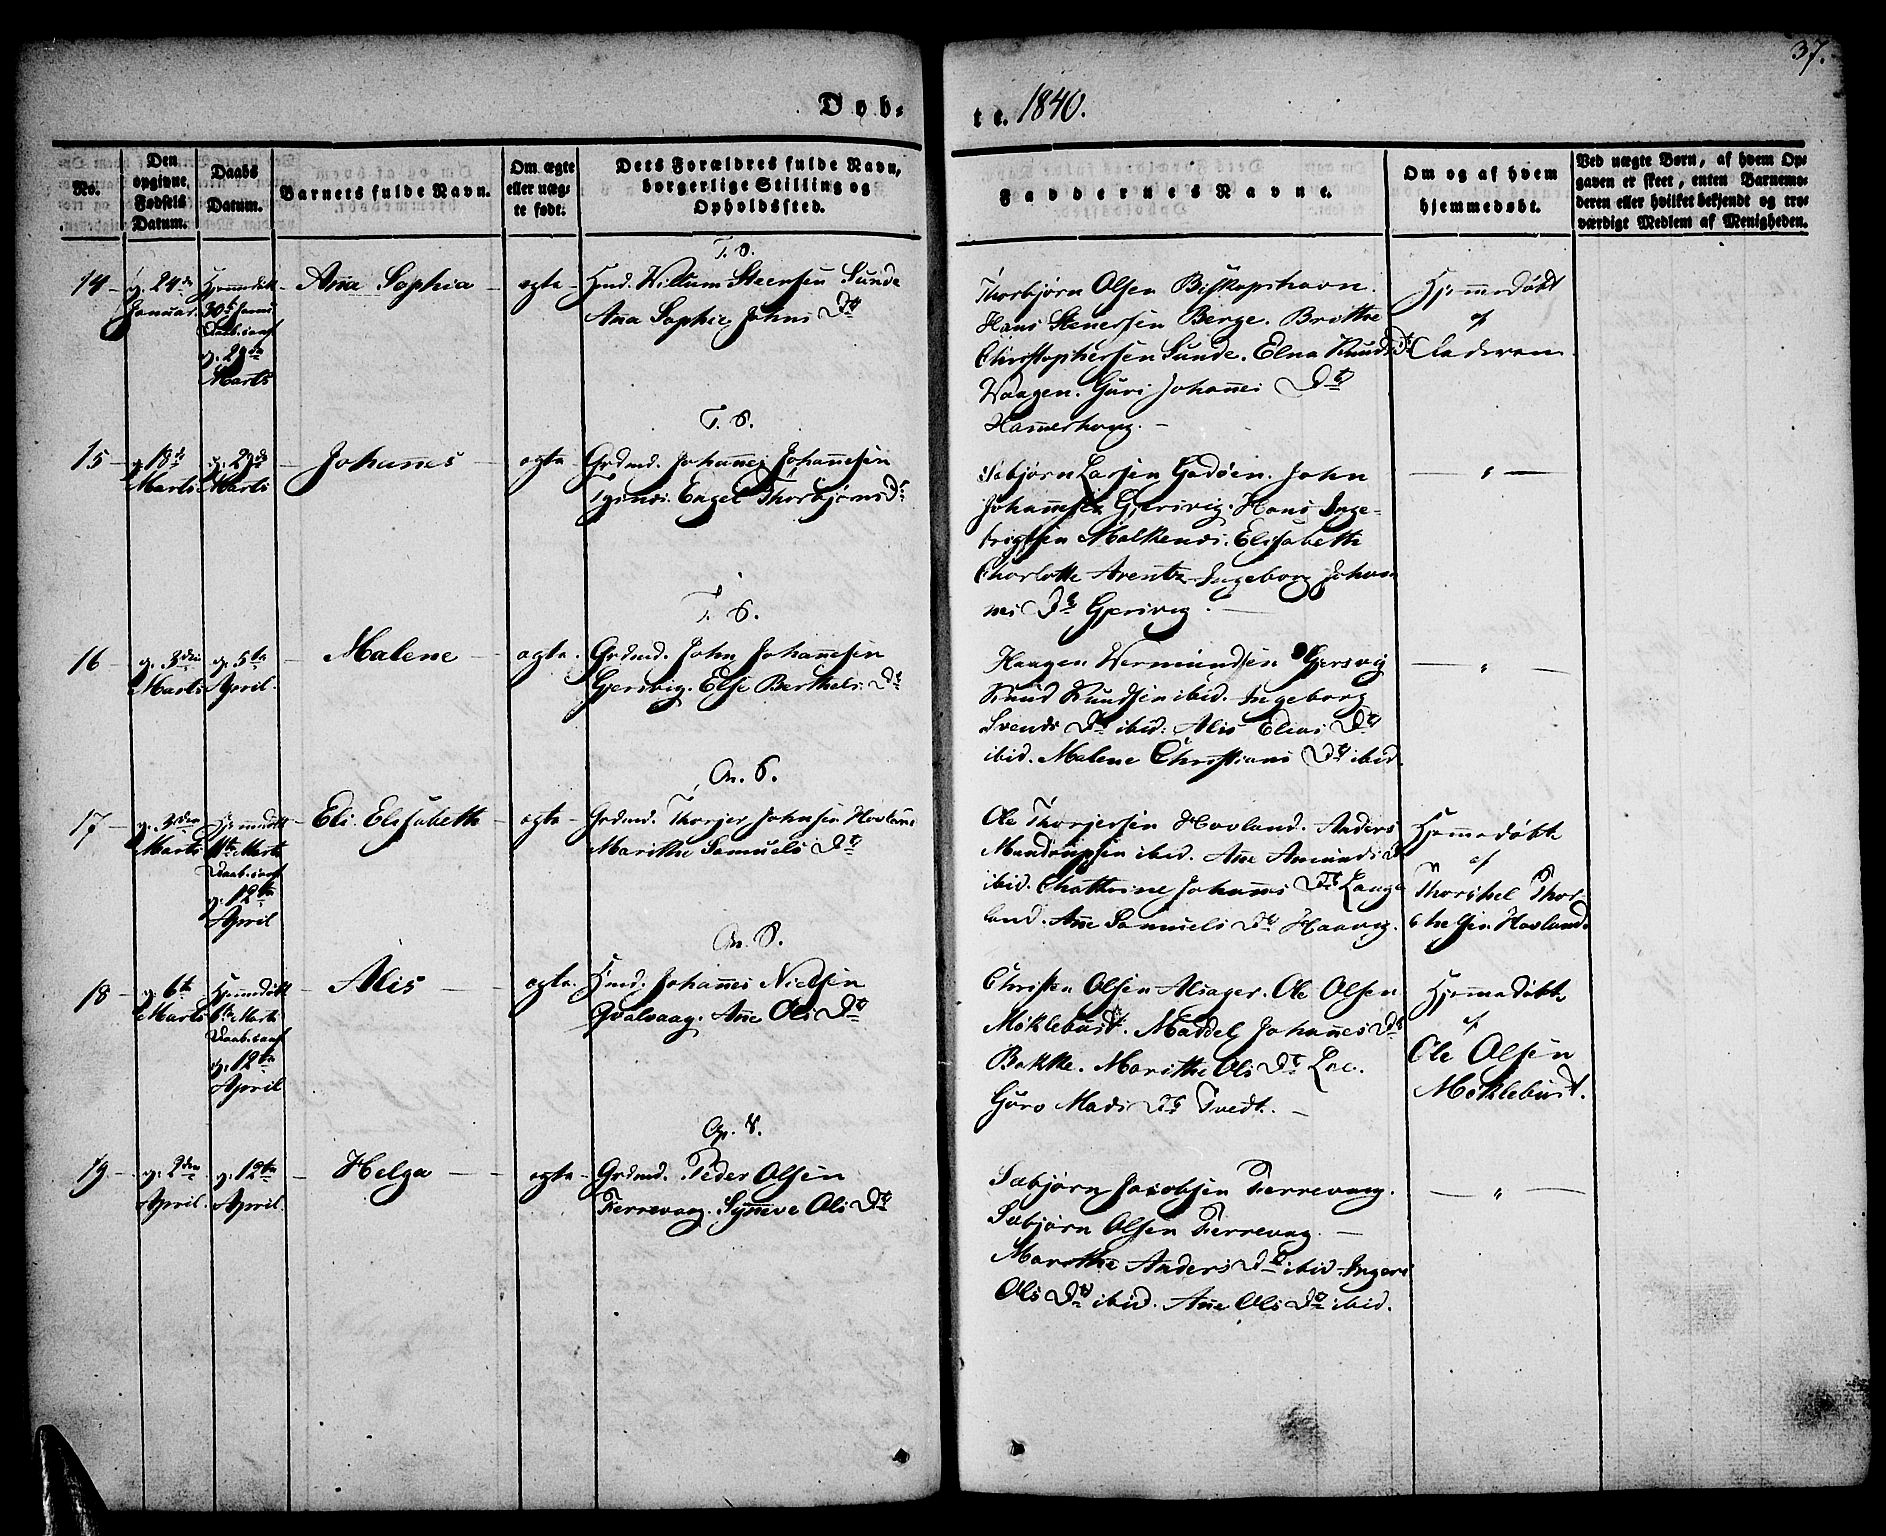 37.
Døb-
te. 1840.
No.
Den opgivne Fødsels Datum.
Daabs Datum.
Barnets fulde Navn.
Om ægte eller uægte født.
Dets Forældres fulde Navn, borgerlige Stilling og Opholdssted.
Faddernes Navne.
Om og af hvem hjemmedøbt.
Ved uægte Børn, af hvem Opgaven er skeet, enten Barnemoderen eller hvilket bekjendt og troværdige Medlem af Menigheden.
T. S.
14
24de
Januar
Hjemmedøbt
30te Janu
Daab.
29de
Marts
Anna Sophia
ægte
Hmd. Willum Steensen Sunde
Anna Sophie Johns Dtr
Thorbjørn Olsen Biskopshavn.
Hans Stenersen Berge. Brithe
Christophersen Sunde. Elna Knuds Dtr
Waagen. Guri Johannes Dtr
Hammerhoug.
Hjemmedøbt
af
T. S.
15
18de
Marts
29de
Marts
Johannes
ægte
Grdmd. Johannes Johannesen
Engel Thorbjørns Dtr
Sæbjørn Larsen Godøen. John
Johannesen Gjersvig. Hans Inge-
brigtsen Malkenes. Elisabeth
Charlotte Arentz. Ingeborg Johan-
nes Dtr Gjersvig.
"
T. S.
16
3die
Marts
5te
April.
Malene
ægte
Grdmd. John Johannesen
Gjersvig. Else Berthels Dtr
Haagen Wermundsen Gjersvig
Knud Knudsen ibid. Ingeborg
Svends Dtr ibid. Alis Elias Dtr
ibid. Malene Christians Dtr ibid.
"
On. S.
17
3die
Marts
Hjemmedøbt
Marts
12te
April
Eli Elisabeth
ægte
Grdmd. Thorjer Johnsen Hovland
Marithe Samuels Dtr
Ole Thorjersen Hovland. Anders
Mundrupsen ibid. Ane Amunds D
ibid. Chathrine Johannes Dtr Lange-
land. Ane Samuels Dtr Haavig.
Hjemmedøbt
af
Thorkel Thor-
Hovland.
On. S.
18
6te
Marts
Hjemmedøbt
Marts
12te
April
Alis
ægte
Hmd. Johannes Nielsen
Qvalvaag. Ane Ols Dtr
Christen Olsen Alsager. Ole Olsen
Møklebust. Maddel Johannes Dtr
Bakke. Marithe Ols Dtr Lae.
Guro Mads Dtr Tvedt.
Hjemmedøbt
af
Ole Olsen
Møklebust.
19
2den
April.
12te
April.
Helga
ægte
Grdmd. Peder Olsen
Færrevaag. Synneve Ols Dtr
Sæbjørn Jacobsen Færrevaag.
Sæbjørn Olsen Færrevaag.
Marithe Anders Dtr ibid. Inger
Ols Dtr ibid. Ane Ols Dtr ibid.
"